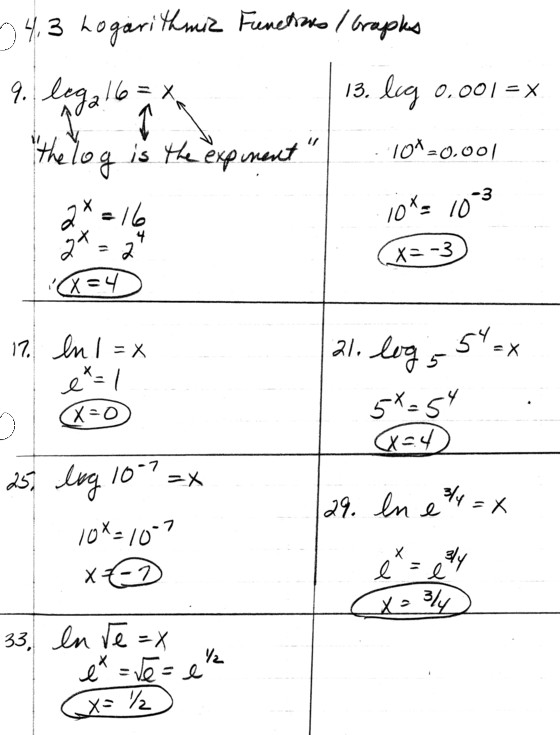 4.3 Logarithmic Functions/Graphs
9. log₂16 = x
"the log is the exponent"
2^x = 16
2^x = 2^4
∴ x=4
13. log 0.001 = x
10^x = 0.001
10^x = 10^-3
x = -3
17. ln 1 = x
e^x = 1
x=0
21. log₅ 5^4 = x
5^x = 5^4
x=4
25. log 10^-7 = x
10^x = 10^-7
x = -7
29. ln e^3/4 = x
e^x = e^3/4
x = 3/4
33. ln √e = x
e^x = √e = e^1/2
x = 1/2